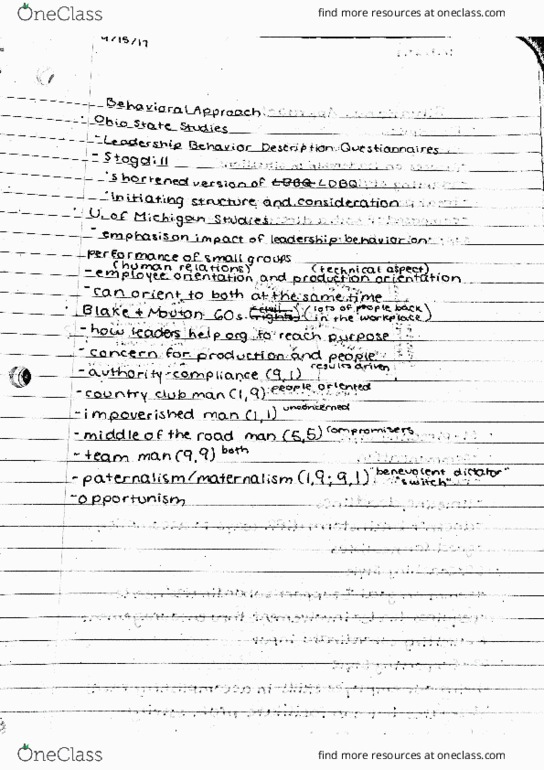 OneClass find more resources at oneclass.com
4/15/17
Behavioral Approach
Ohio State Studies
- Leadership Behavior Description Questionnaires
- Stogdill
shortened version of LBDQ
initiating structure and consideration
U. of Michigan Studies
- emphasis on impact of leadership behavior on
performance of small groups
(human relations) (technical aspect)
- employee orientation and production orientation
- can orient to both at the same time
Blake + Mouton 60s (lots of people back
in the workplace)
- how leaders help org to reach purpose
- concern for production and people
- authority-compliance (9,1) results driven
- country club man (1,9) people oriented
- impoverished man (1,1) unconcerned
- middle of the road man (5,5) compromizers
- team man (9,9) both
- paternalism/maternalism (1,9; 9,1) "benevolent dictator"
"switch"
- opportunism
OneClass find more resources at oneclass.com